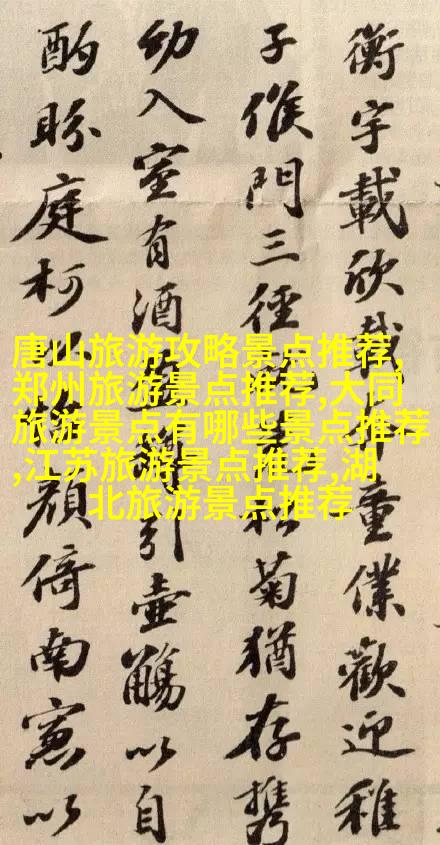 衡宇載欣載奔童僕歡迎稚
子候門三徑松菊猶存携
幼入室有酒引壺觴以自
酌眄庭柯顏倚南窓以
唐山旅游攻略景点推荐,
郑州旅游景点推荐,大同
旅游景点有哪些景点推荐
,江苏旅游景点推荐,湖
北旅游景点推荐